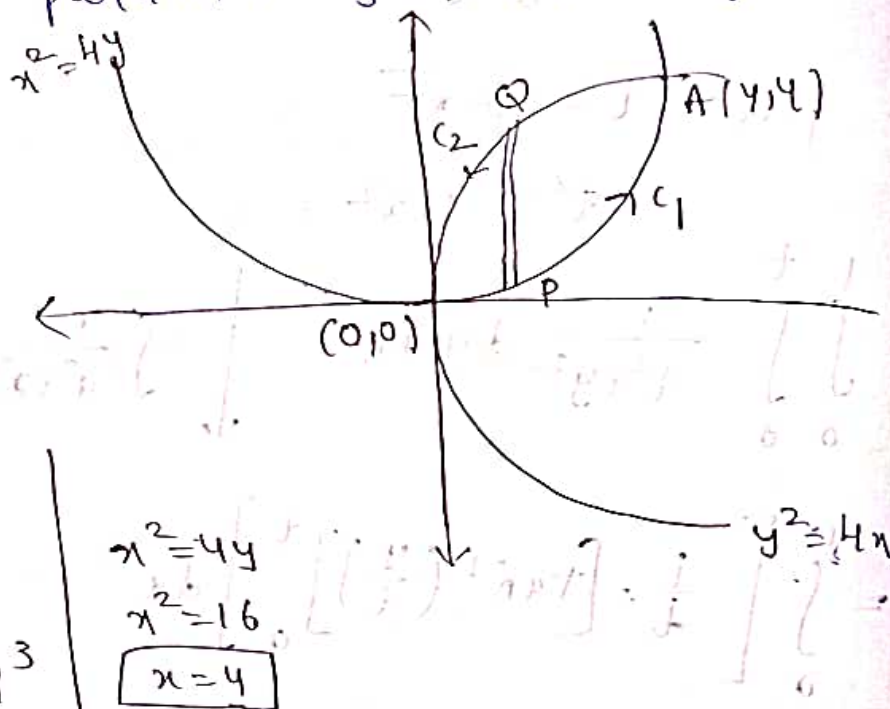 x² = 4y
Q
A(4,4)
C₂
C₁
P
(0,0)
y² = 4x
x² = 4y
x² = 16
3
x = 4